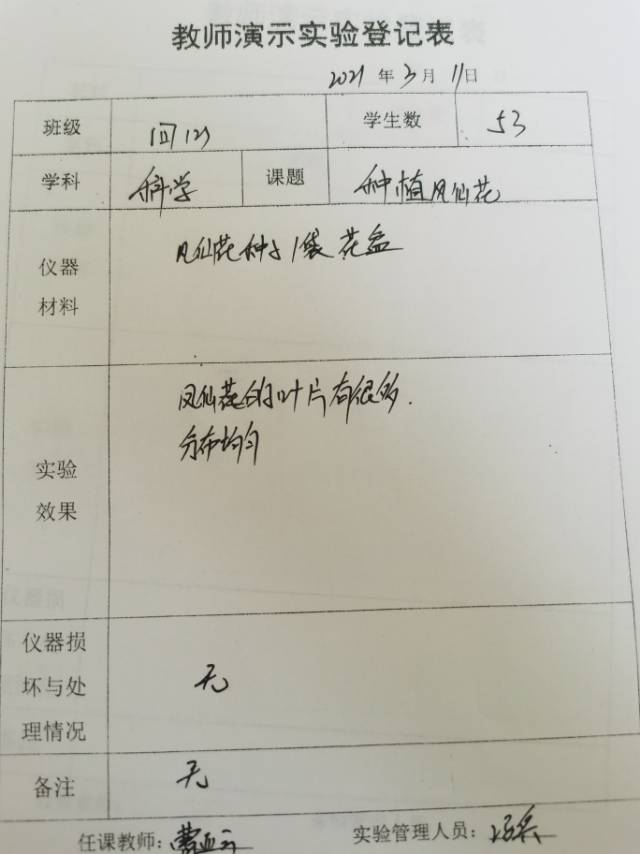 教师演示实验登记表
2021 年 3 月 11 日
班级 四(2) 学生数 53
学科 科学 课题 种植凤仙花
仪器
材料
凤仙花种子1袋 花盆
实验
效果
凤仙花的叶片有很多.
分布均匀
仪器损
坏与处
理情况
无
备注 无
任课教师: 实验管理人员: